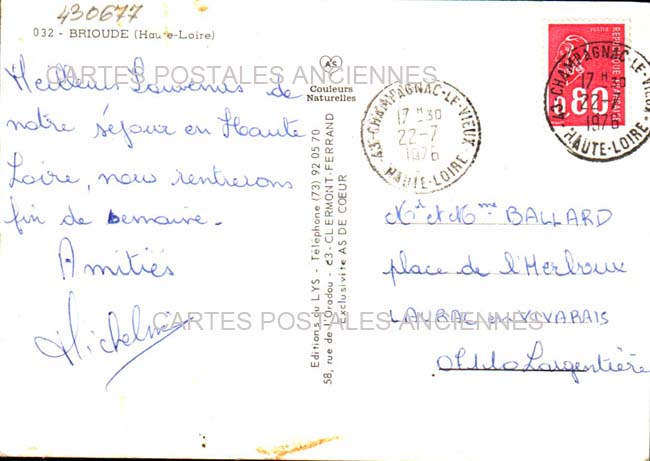 430677
032 - BRIOUDE (Haute-Loire)
AS
Couleurs
Naturelles
Meilleurs Souvenirs de
notre séjour en Haute
Loire, nous rentrerons
fin de semaine.
Amitiés
Editions du LYS - Téléphone (73) 92 05 70
58, rue de l'Oradou - 63-CLERMONT-FERRAND
Exclusivité AS DE COEUR
43-CHAMPAGNAC-LE-VIEUX
17 H 30
22-7
1976
HAUTE-LOIRE
REPUBLIQUE FRANCAISE
0,80
43-CHAMPAGNAC-LE-VIEUX
17 H 30
22-7
1976
HAUTE-LOIRE
Mr et Mme BALLARD
place de l'Herboux
LAURAC en VIVARAIS
07110 Largentière
CARTES POSTALES ANCIENNES
CARTES POSTALES ANCIENNES